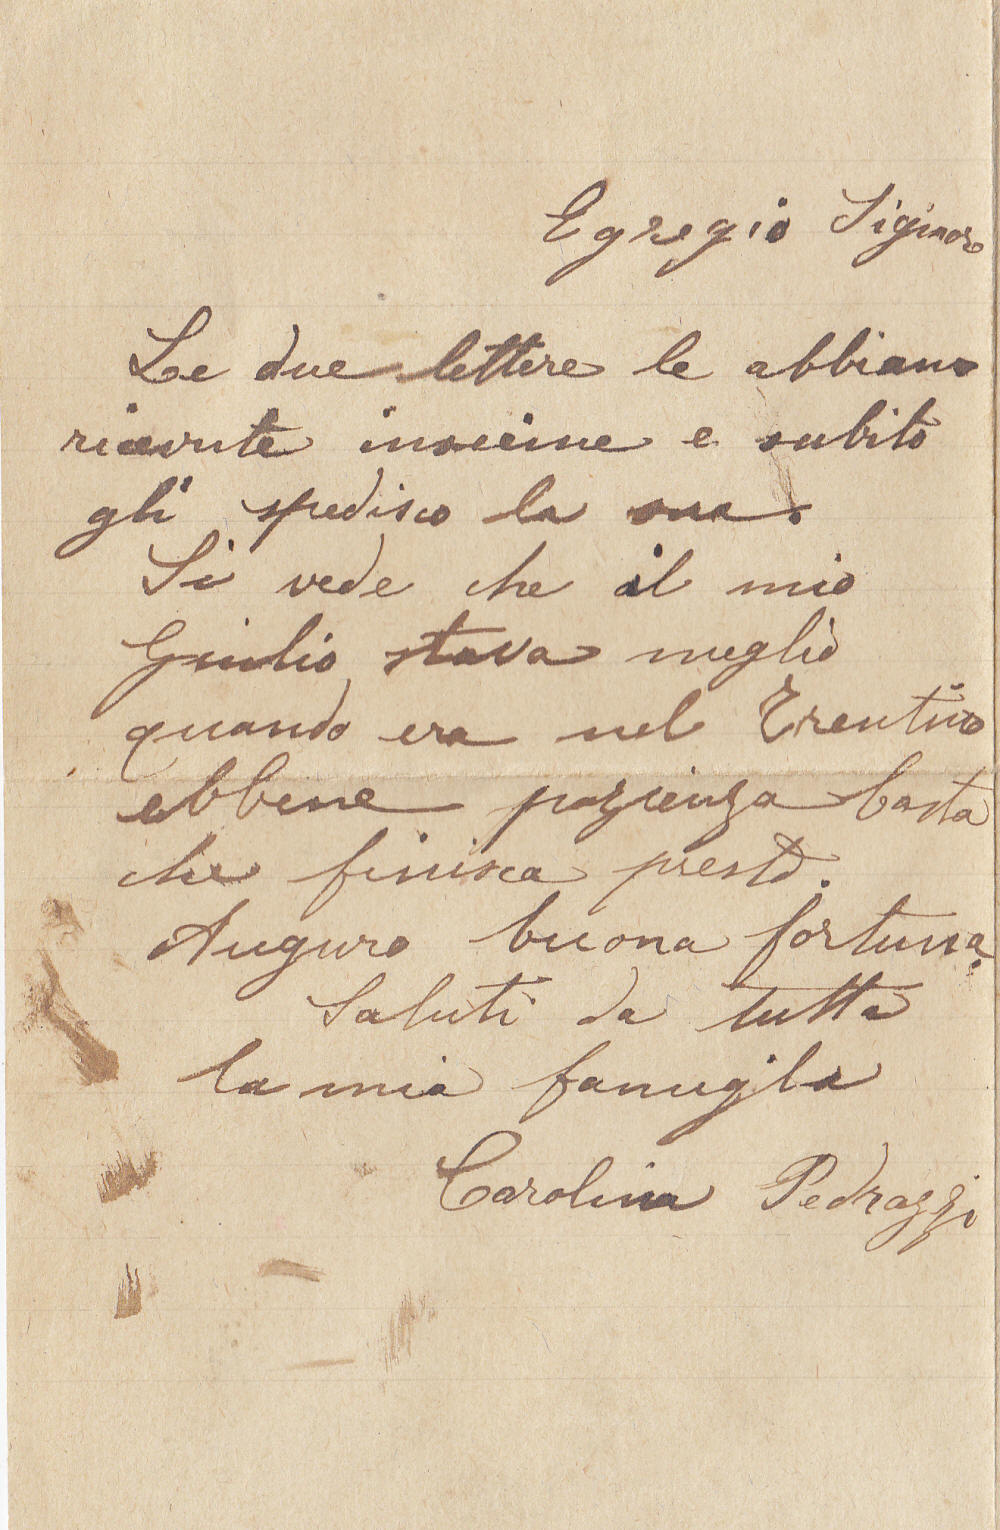 Egregio Signore
Le due lettere le abbiamo
ricevute insieme e subito
gli spedisco la sua.
Si vede che il mio
Giulio stava meglio
quando era nel Trentino
ebbene pazienza basta
che finisca presto.
Auguro buona fortuna.
Saluti da tutta
la mia famigla
Carolina Pedrazzi